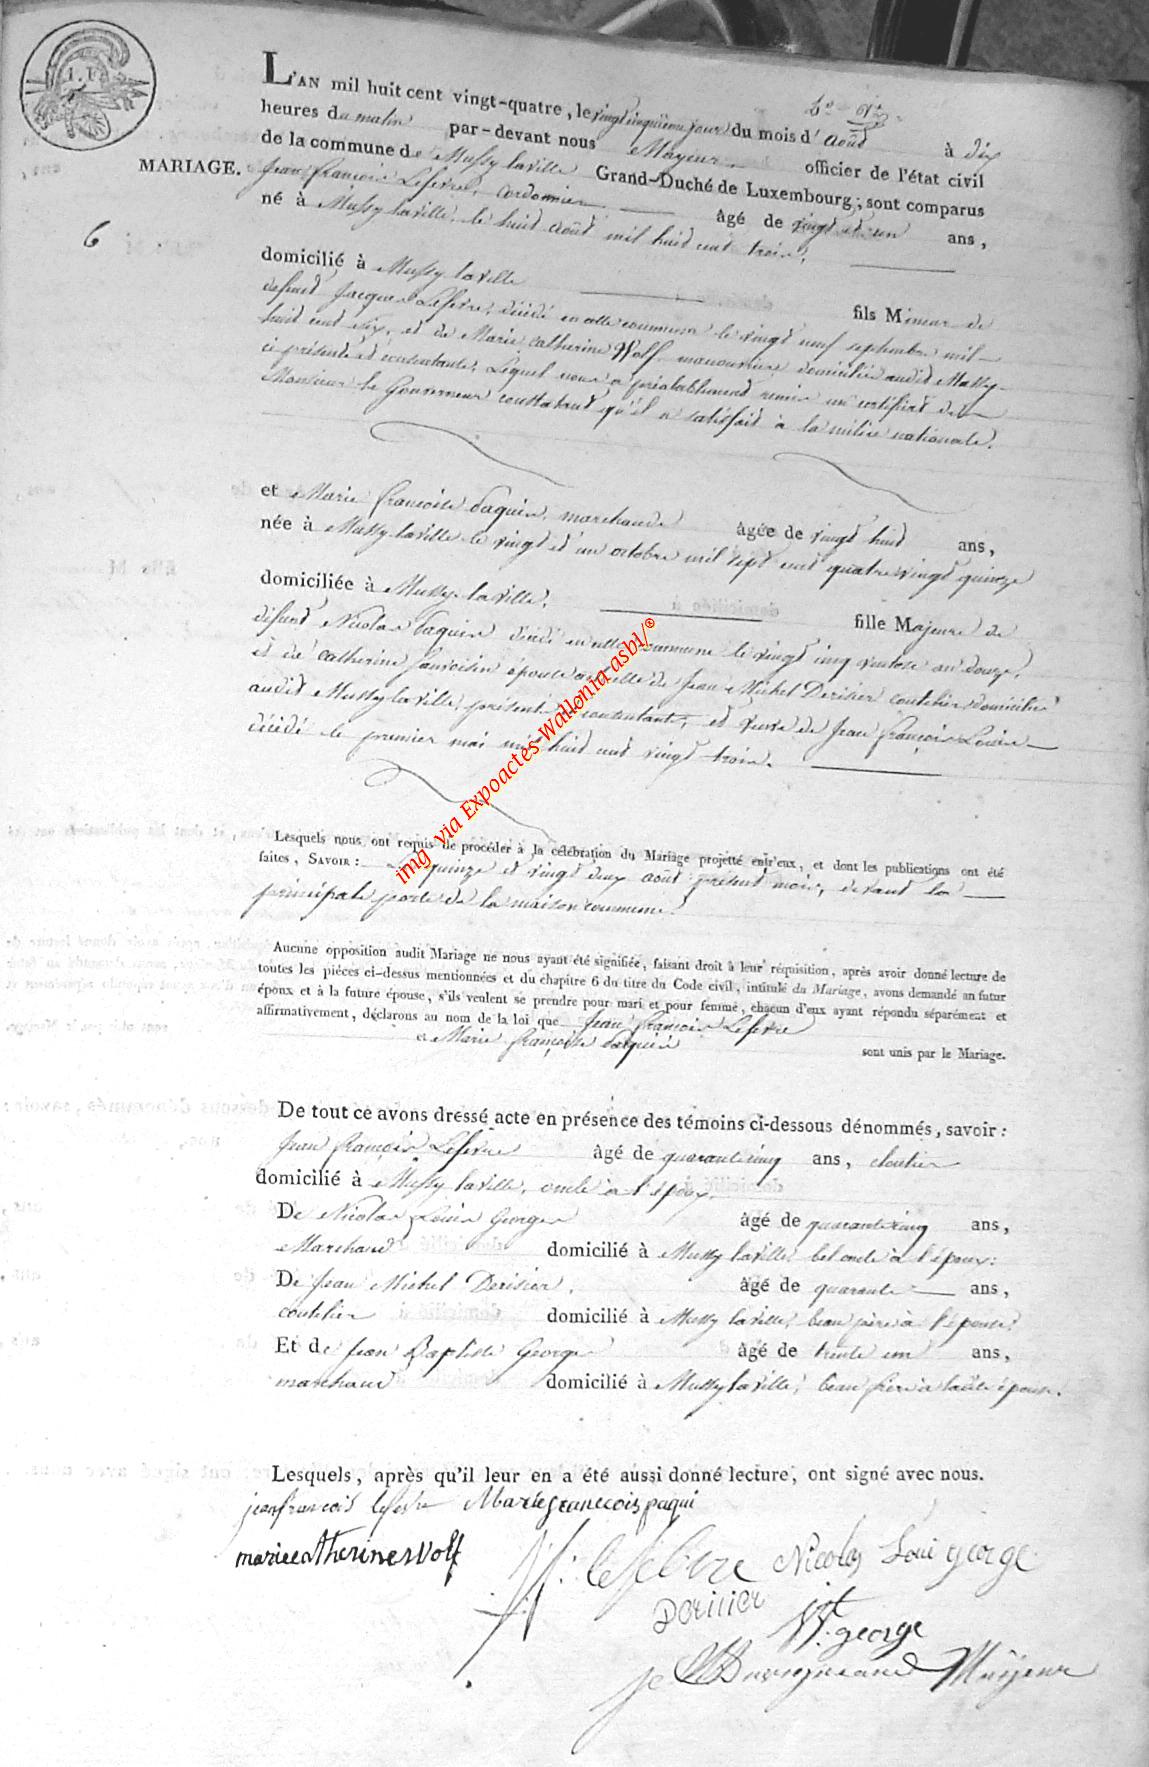 L'AN mil huit cent vingt-quatre, le vingt cinquieme jour du mois d'août à dix
heures du matin par-devant nous Mayeur officier de l'état civil
de la commune de Mussy laville Grand-Duché de Luxembourg, sont comparus
MARIAGE.
6
Jean françois Lefevre, cordonnier âgé de vingt et un ans,
né à Mussy laville, le huit août mil huit cent trois,
domicilié à Mussy laville fils Mineur de
defunt Jacques Lefevre, décédé en cette commune le vingt neuf septembre mil
huit cent six, et de Marie Catherine Wolf manouvrière domiciliée audit Mussy
ci présente et consentante, Lequel nous a préalablement remis un certificat de
Monsieur le Gouverneur constatant qu'il a satisfait à la milice nationale.
et Marie françoise Paquin, marchande âgée de vingt huit ans,
née à Mussy laville le vingt et un octobre mil sept cent quatre vingt quinze
domiciliée à Mussy laville, fille Majeure de
défunt Nicolas Paquin décédé en cette commune le vingt cinq ventose an douze,
et de Catherine épouse actuelle de Jean Michel Derisier coutelier domicilié
audit Mussy laville, présente et consentante, et veuve de Jean françois Louis
décédé le premier mai mil huit cent vingt trois.
img via Expoactes-Wallonia asbl/©
Lesquels nous ont requis de procéder à la célébration du Mariage projetté entr'eux, et dont les publications ont été
faites, SAVOIR : quinze et vingt deux août présent mois, devant la
principale porte de la maison commune.
Aucune opposition audit Mariage ne nous ayant été signifiée, faisant droit à leur réquisition, après avoir donné lecture de
toutes les piéces ci-dessus mentionnées et du chapitre 6 du titre du Code civil, intitulé du Mariage, avons demandé au futur
époux et à la future épouse, s'ils veulent se prendre pour mari et pour femme, chacun d'eux ayant répondu séparément et
affirmativement, déclarons au nom de la loi que Jean françois Lefevre
et Marie françoise Paquin sont unis par le Mariage.
De tout ce avons dressé acte en présence des témoins ci-dessous dénommés, savoir :
Jean françois Lefevre âgé de quarante cinq ans, cloutier
domicilié à Mussy laville, oncle à l'époux,
De Nicolas Louis George âgé de quarante cinq ans,
Marchand domicilié à Mussy laville, bel oncle à l'époux;
De Jean Michel Derisier, âgé de quarante ans,
coutelier domicilié à Mussy laville, beau père à l'épouse,
Et de Jean Baptiste George âgé de trente un ans,
marchand domicilié à Mussy laville, beau frère à laditte épouse.
Lesquels, après qu'il leur en a été aussi donné lecture, ont signé avec nous.
jean francois lefevre Marie francois paqui
marie catherine Wolf
lefebvre Nicolas Loui george
Derisier
george
Mayeur